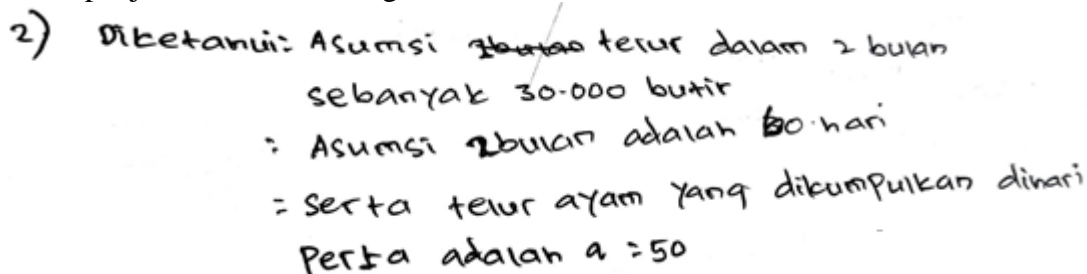 2) Diketahui: Asumsi telur dalam 2 bulan
sebanyak 30.000 butir
: Asumsi 2bulan adalah 60 hari
= serta telur ayam yang dikumpulkan dihari
Perta adalah a = 50